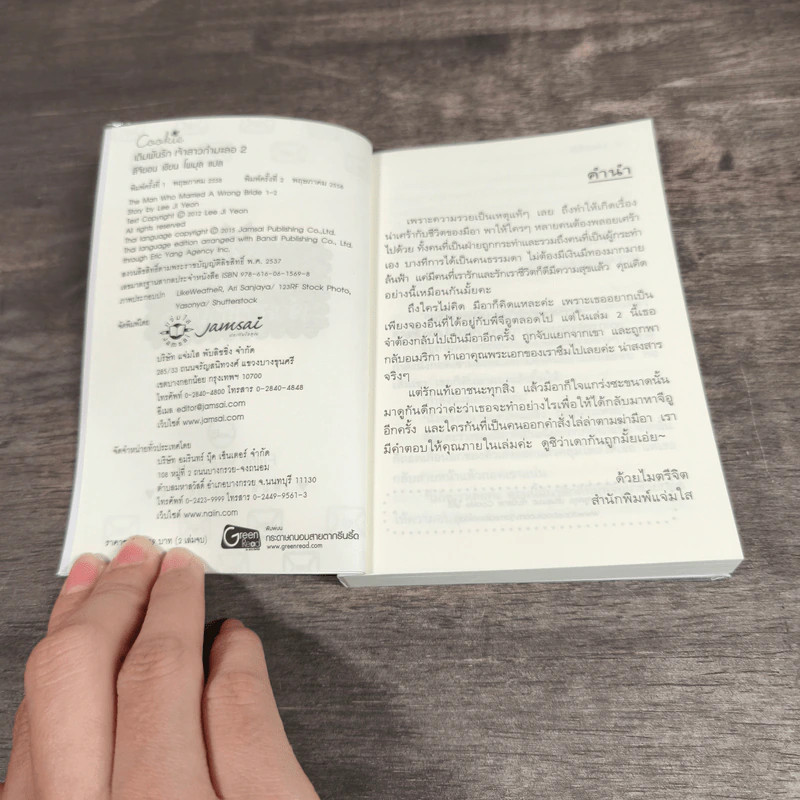 Cookie
เดิมพันรัก เจ้าสาวกำมะลอ 2
อีจียอน เขียน ไพมุล แปล
พิมพ์ครั้งที่ 1 พฤษภาคม 2556 พิมพ์ครั้งที่ 2 พฤษภาคม 2556
The Man Who Married A Wrong Bride 1-2
Story by Lee Ji Yeon
Text Copyright © 2012 Lee Ji Yeon
All rights reserved
Thai language copyright © 2013 Jamsai Publishing Co.,Ltd.
Thai language edition arranged with Bandi Publishing Co., Ltd.
through Eric Yang Agency Inc.
สงวนลิขสิทธิ์ตามพระราชบัญญัติลิขสิทธิ์ พ.ศ. 2537
เลขมาตรฐานสากลประจำหนังสือ ISBN 978-616-06-1569-8
ภาพประกอบปก LikeWeatheR, Ari Sanjaya/ 123RF Stock Photo,
Yasonya/ Shutterstock
จัดพิมพ์โดย
jamsai
บริษัท แจ่มใส พับลิชชิ่ง จำกัด
285/33 ถนนจรัญสนิทวงศ์ แขวงบางขุนศรี
เขตบางกอกน้อย กรุงเทพฯ 10700
โทรศัพท์ 0-2840-4800 โทรสาร 0-2840-4848
อีเมล editor@jamsai.com
เว็บไซต์ www.jamsai.com
จัดจำหน่ายทั่วประเทศโดย
บริษัท อมรินทร์ บุ๊ค เซ็นเตอร์ จำกัด
108 หมู่ที่ 2 ถนนบางกรวย-จงถนอม
ตำบลมหาสวัสดิ์ อำเภอบางกรวย จ.นนทบุรี 11130
โทรศัพท์ 0-2423-9999 โทรสาร 0-2449-9561-3
เว็บไซต์ www.naiin.com
บาท (2 เล่มจบ)
Green Read
พิมพ์บน
กระดาษถนอมสายตากรีนรี้ด
www.greenread.com
คำนำ
เพราะความรวยเป็นเหตุแท้ๆ เลย ถึงทำให้เกิดเรื่อง
น่าเศร้ากับชีวิตของมีอา พาให้ใครๆ หลายคนต้องพลอยเศร้า
ไปด้วย ทั้งคนที่เป็นฝ่ายถูกกระทำและรวมถึงคนที่เป็นผู้กระทำ
เอง บางทีการได้เป็นคนธรรมดา ไม่ต้องมีเงินมีทองมากมาย
ล้นฟ้า แค่มีคนที่เรารักและรักเราชีวิตก็ดีมีความสุขแล้ว คุณคิด
อย่างนี้เหมือนกันมั้ยคะ
ถึงใครไม่คิด มีอาก็คิดแหละค่ะ เพราะเธออยากเป็น
เพียงจองอึนที่ได้อยู่กับพี่จีอูตลอดไป แต่ในเล่ม 2 นี้เธอ
จำต้องกลับไปเป็นมีอาอีกครั้ง ถูกจับแยกจากเขา และถูกพา
กลับอเมริกา ทำเอาคุณพระเอกของเราซึมไปเลยค่ะ น่าสงสาร
จริงๆ
แต่รักแท้เอาชนะทุกสิ่ง แล้วมีอาก็ใจแกร่งซะขนาดนั้น
มาดูกันดีกว่าค่ะว่าเธอจะทำอย่างไรเพื่อให้ได้กลับมาหาจีอู
อีกครั้ง และใครกันที่เป็นคนออกคำสั่งไล่ล่าตามฆ่ามีอา เรา
มีคำตอบให้คุณภายในเล่มค่ะ ดูซิว่าเดากันถูกมั้ยเอ่ย~
ด้วยไมตรีจิต
สำนักพิมพ์แจ่มใส